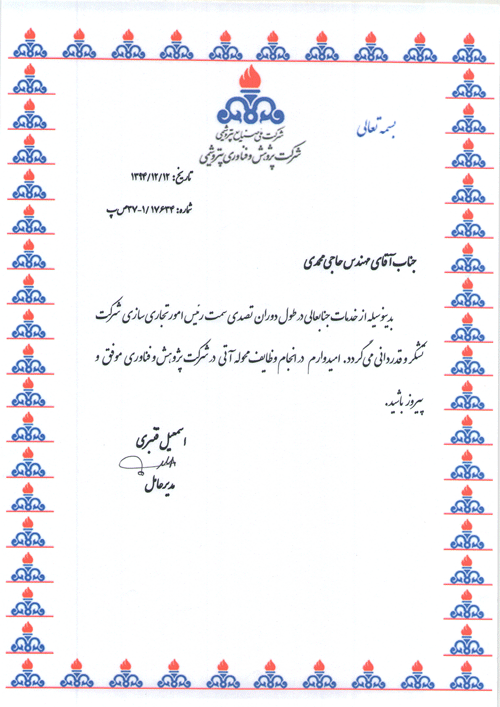 بسمه تعالی
شرکت ملی صنایع پتروشیمی
شرکت پژوهش و فناوری پتروشیمی
تاریخ: ۱۳۹۴/۱۲/۱۲
شماره: ۱/۱۷۶۳۴-۳۷ص پ
جناب آقای مهندس حاجی محمدی
بدینوسیله از خدمات جنابعالی در طول دوران تصدی سمت رئیس امور تجاری سازی شرکت
تشکر و قدردانی می گردد. امیدوارم در انجام وظایف محوله آتی در شرکت پژوهش و فناوری موفق و
پیروز باشید.
اسمعیل قنبری
مدیرعامل